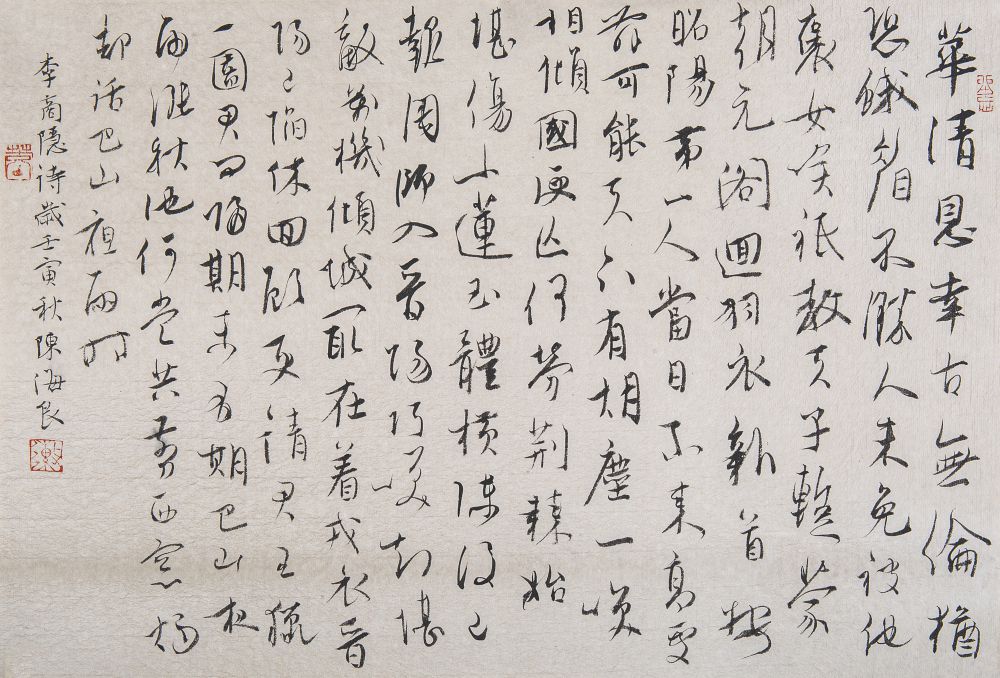 華清恩幸古無倫猶
恐蛾眉不勝人未免被他
褒女笑祇教天子暫蒙
朝元閣迴羽衣新首按
昭陽第一人當日不來高處
舞可能天下有胡塵一笑
相傾國便亡何勞荊棘始
堪傷小蓮玉體橫陳夜已
報周師入晉陽巧笑知堪
敵萬機傾城最在着戎衣晉
陽已陷休回顧更請君王獵
一圍君問歸期未有期巴山夜
雨漲秋池何當共剪西窗燭
却話巴山夜雨時
李商隱詩歲壬寅秋陳海良